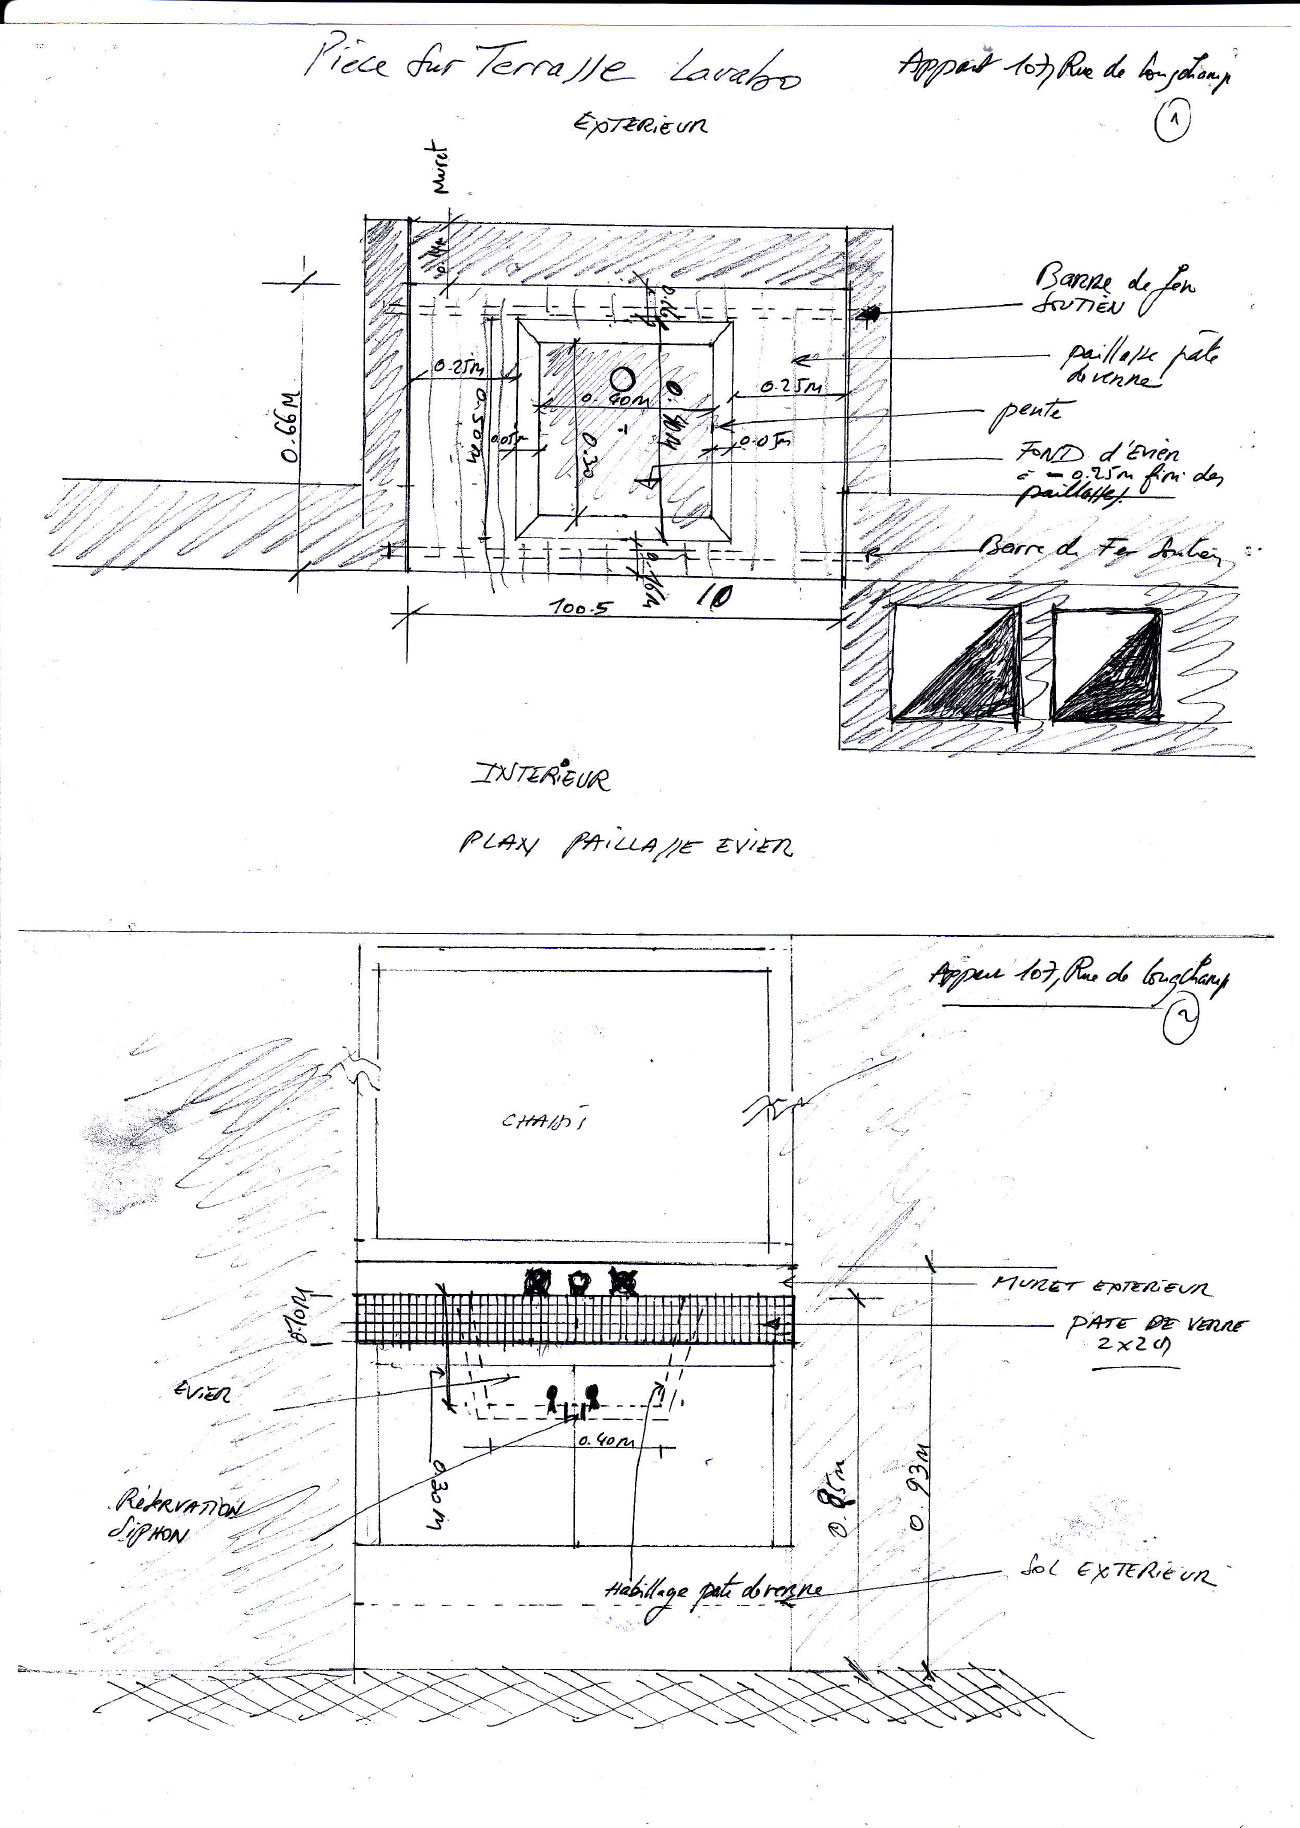 Pièce sur Terrasse Lavabo
Appart 107, Rue de Longchamp
1
EXTERIEUR
Muret
Barre de fer
SOUTIEN
paillasse pâte
de verre
0.25M
0.40M
0.25M
0.66M
0.50M
0.05M
0.30
0.40M
0.05M
pente
FOND d'EVIER
à - 0.25m fini des
paillasses.
Barre de Fer Soutien
0.16M
10
100.5
INTERIEUR
PLAN PAILLASSE EVIER
Appart 107, Rue de Longchamp
2
CHASSIS
MURET EXTERIEUR
0.10M
PATE DE VERRE
2x2
EVIER
0.40M
0.30M
0.85M
0.93M
Réservation
SIPHON
Habillage pate de verre
SOL EXTERIEUR